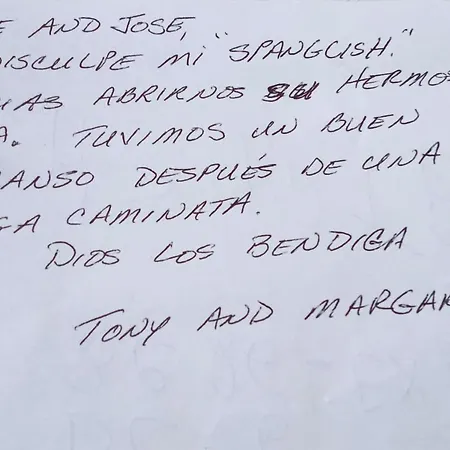 E AND JOSE,
DISCULPE MI "SPANGLISH."
AS ABRIRNOS SU HERMOS
A. TUVIMOS UN BUEN
ANSO DESPUÉS DE UNA
GA CAMINATA.
DIOS LOS BENDIGA
TONY AND MARGAR